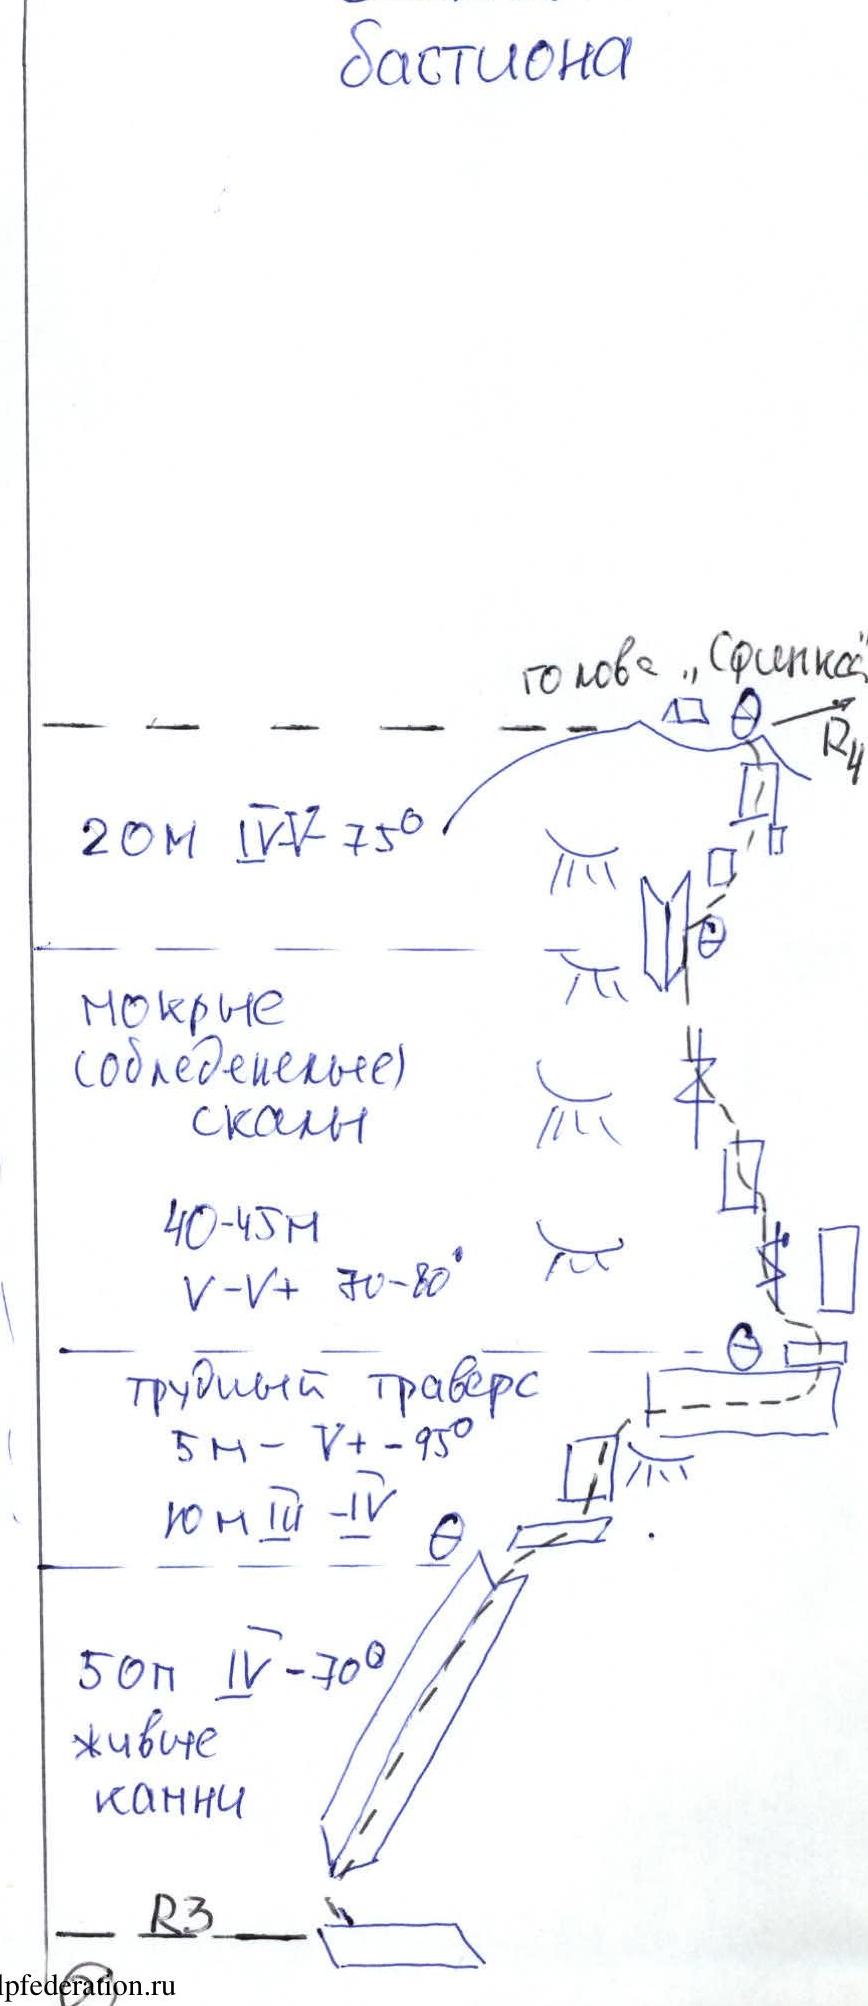 бастиона
голова „Сфинкса"
R4
20м IV-V 75°
мокрые
(обледенелые)
скалы
40-45м
V-V+ 70-80°
трудный траверс
5м - V+ - 95°
10м III - IV
50м IV - 70°
живые
камни
R3
lpfederation.ru